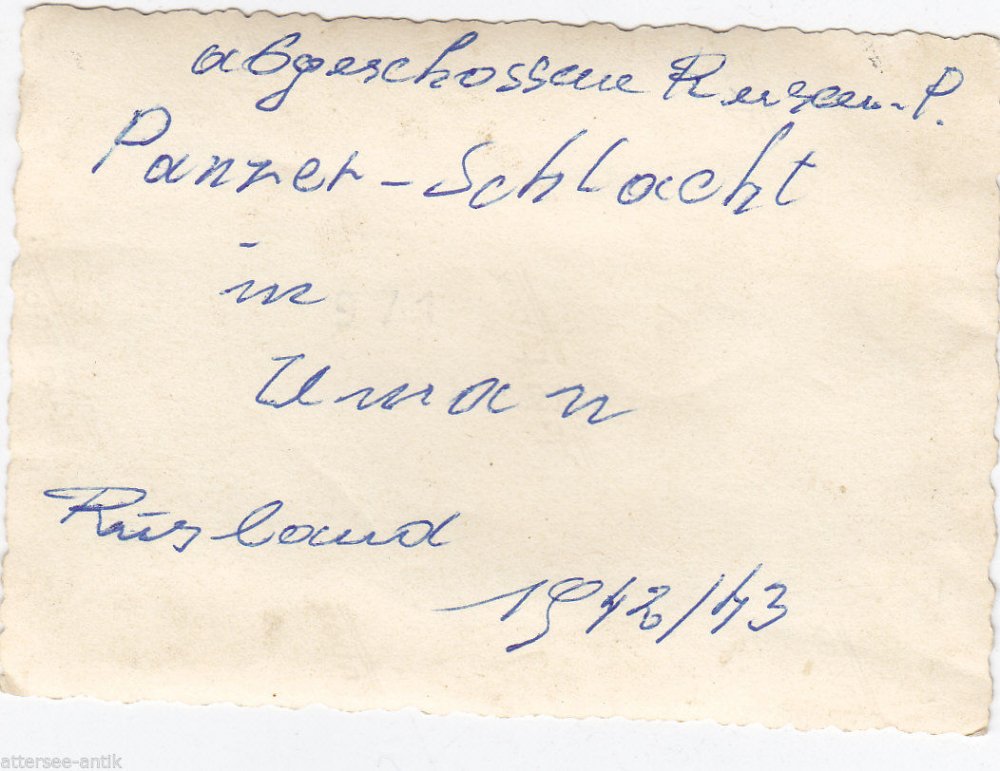 abgeschossene Russen-P.
Panzer-Schlacht
in
Uman
Rusland
1942/43
attersee-antik